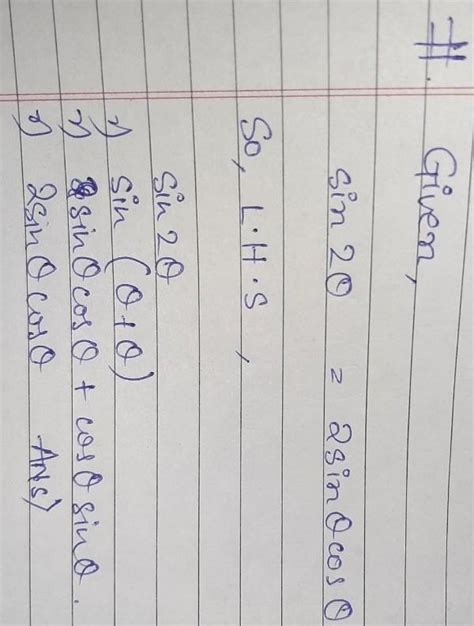 #.
Given,
sin 2θ = 2sinθcosθ
So, L.H.S,
sin 2θ
⇒ sin (θ+θ)
⇒ sinθcosθ + cosθsinθ.
⇒ 2sinθcosθ Ans)